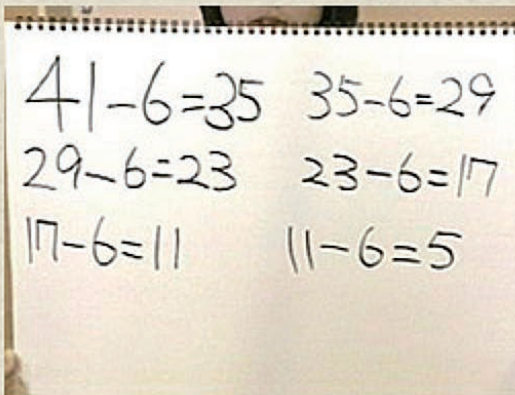 41-6=35 35-6=29
29-6=23 23-6=17
17-6=11 11-6=5